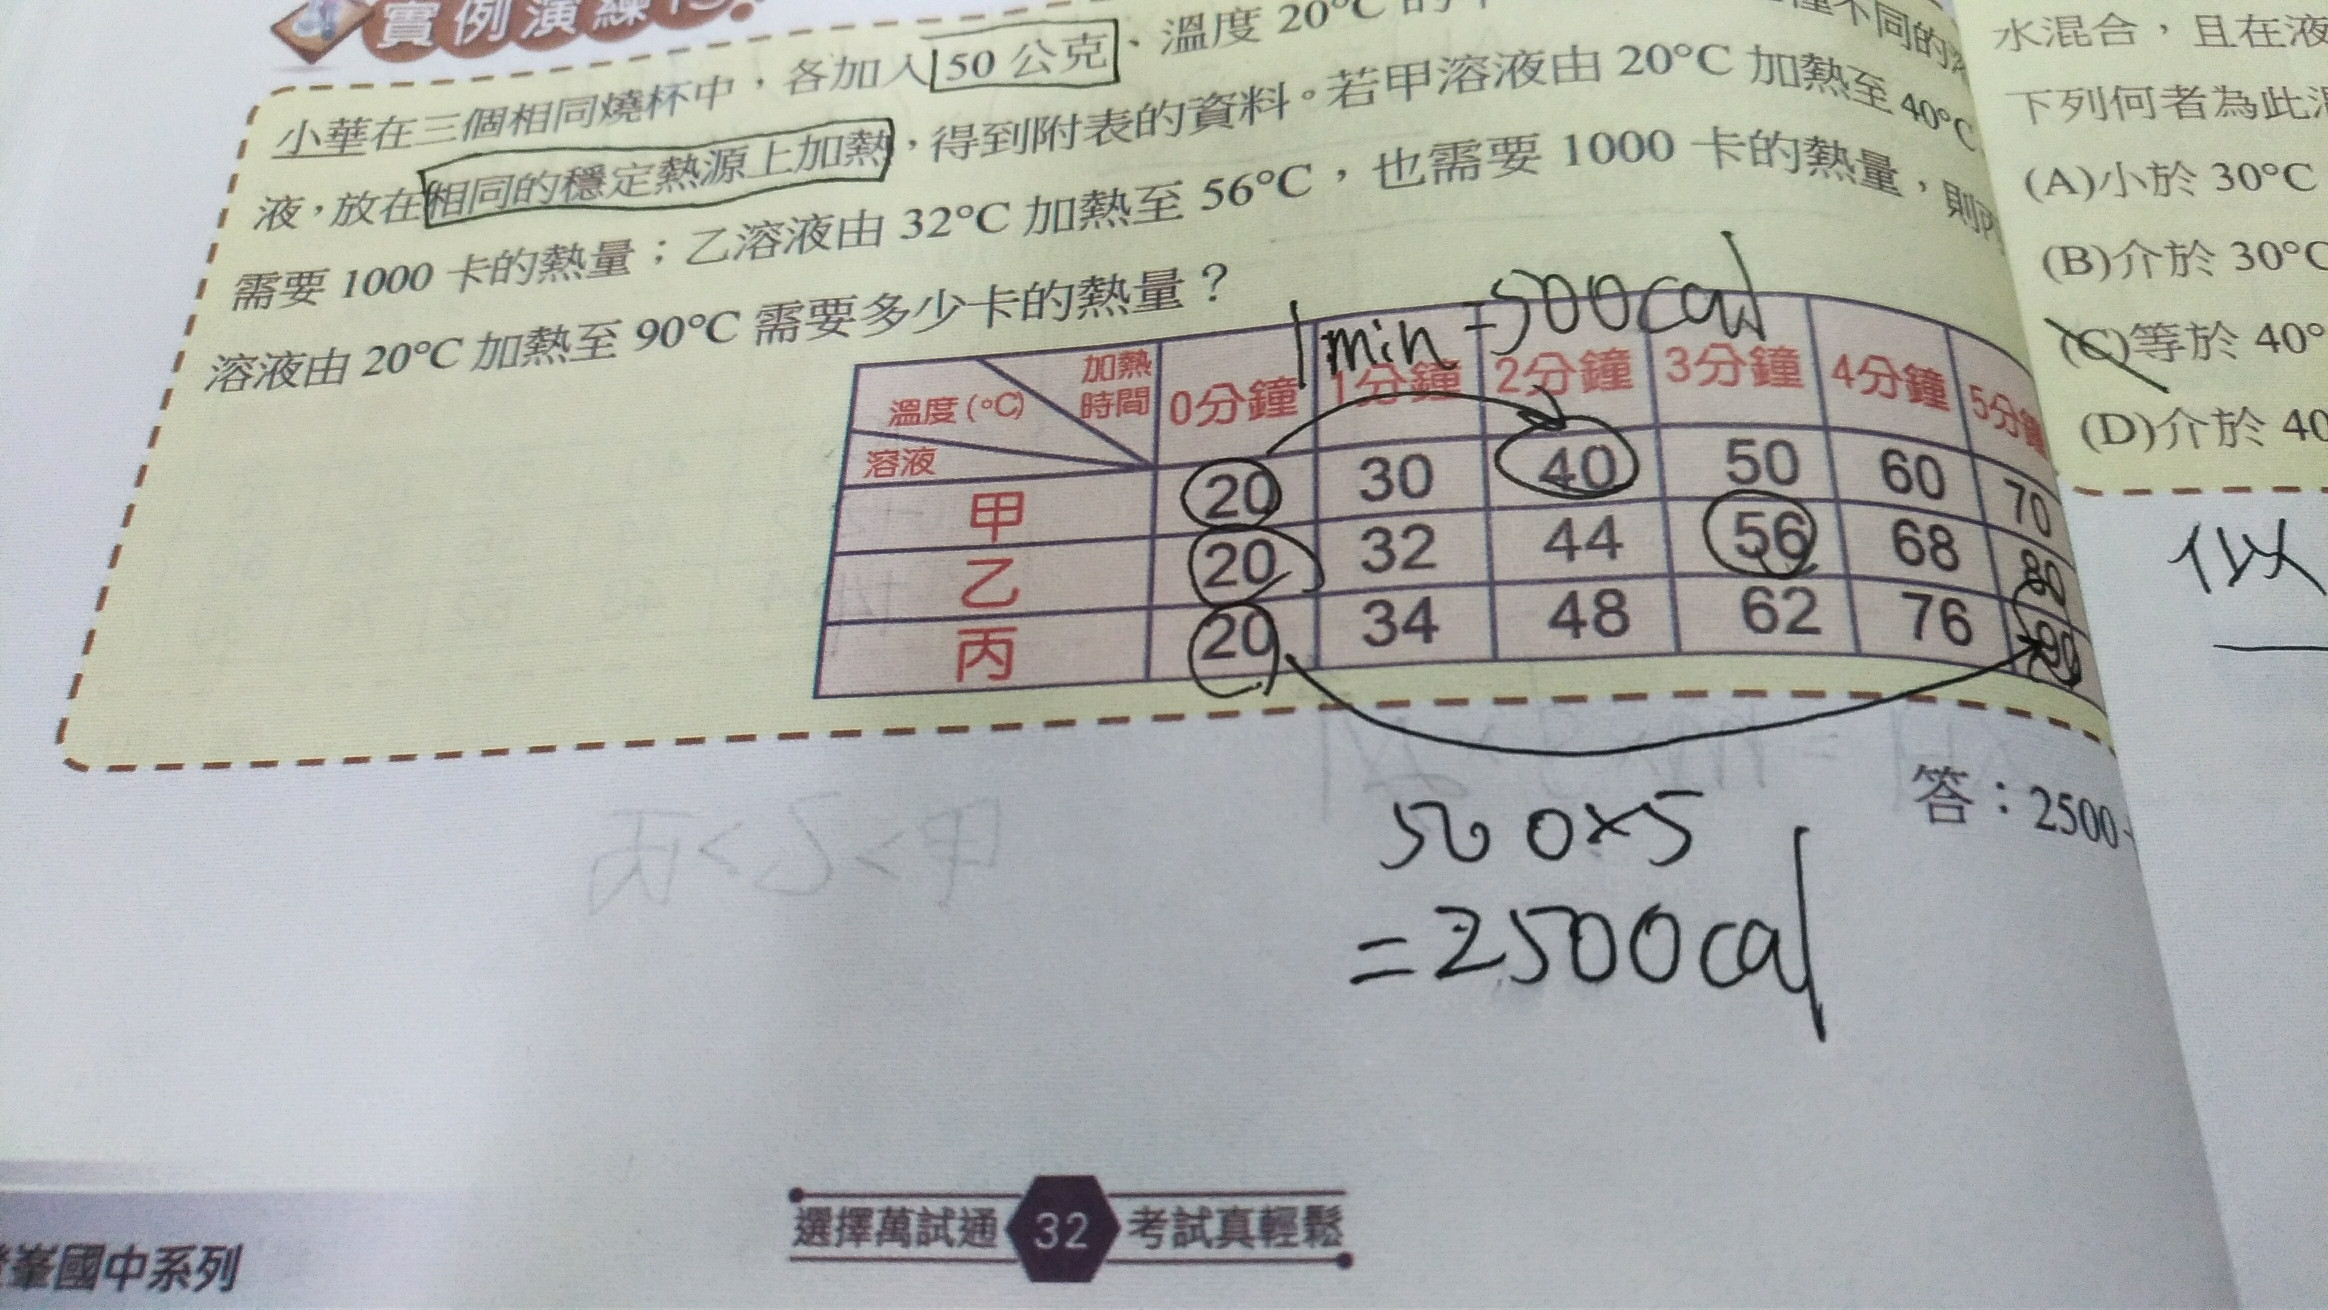 實例演練
小華在三個相同燒杯中，各加入 50 公克、溫度 20°C 的
不同的
液，放在相同的穩定熱源上加熱，得到附表的資料。若甲溶液由 20°C 加熱至 40°C
需要 1000 卡的熱量；乙溶液由 32°C 加熱至 56°C，也需要 1000 卡的熱量，則丙
溶液由 20°C 加熱至 90°C 需要多少卡的熱量？
1min=500cal
加熱時間 0分鐘 1分鐘 2分鐘 3分鐘 4分鐘 5分鐘
溫度(°C)
溶液
甲 20 30 40 50 60 70
乙 20 32 44 56 68 80
丙 20 34 48 62 76 90
答：2500
500×5
=2500cal
選擇萬試通 32 考試真輕鬆
峯國中系列
水混合，且在液
下列何者為此
(A)小於 30°C
(B)介於 30°C
(C)等於 40°
(D)介於 40
似